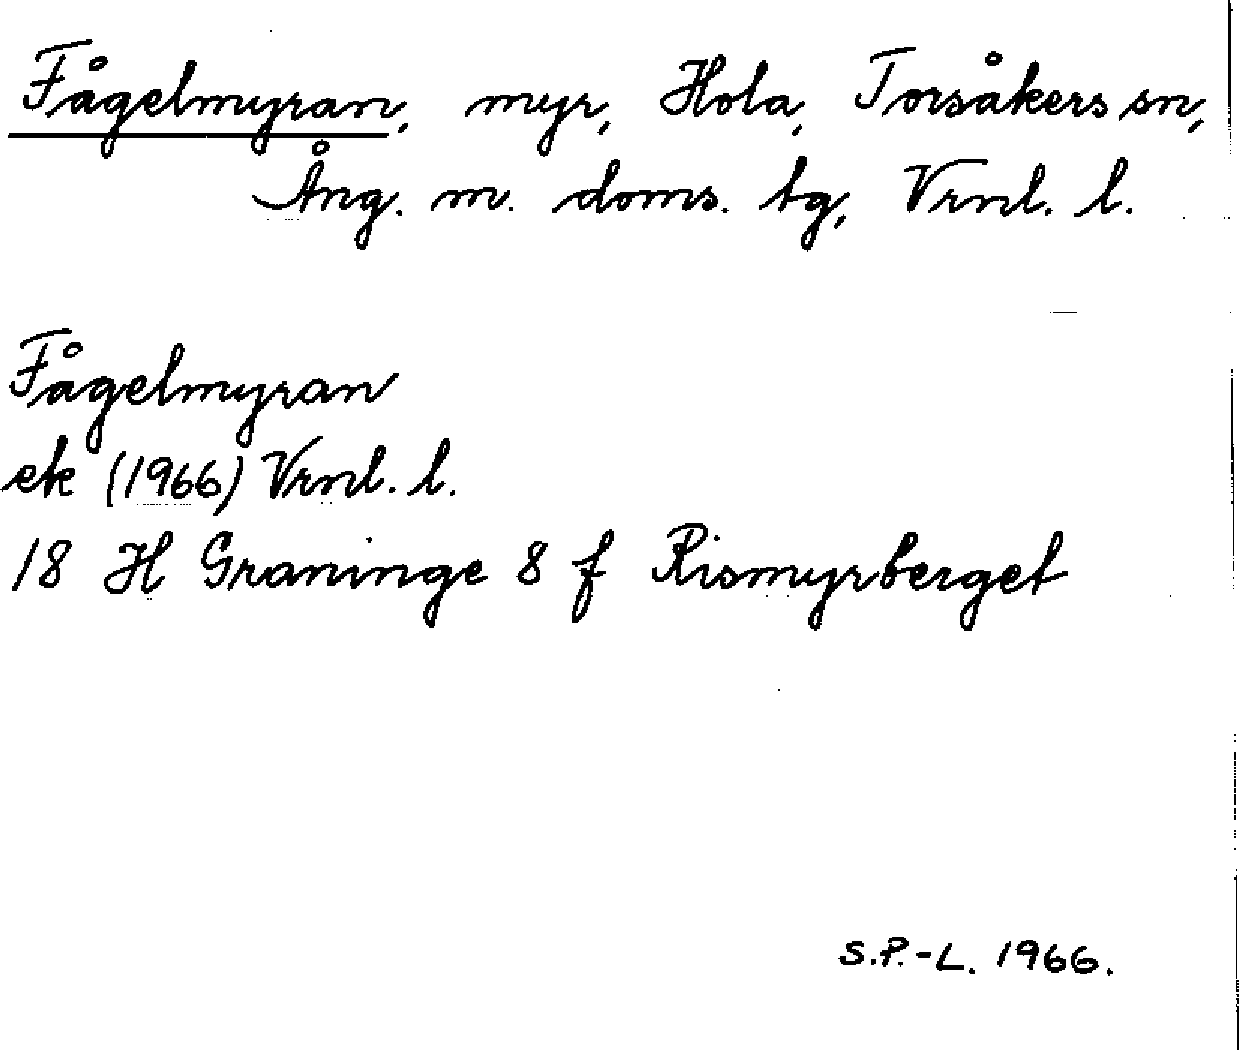 Fågelmyran, myr, Hola, Torsåkers sn,
Ång. m. doms. tg, Vrnl. l.
Fågelmyran
ek (1966) Vrnl. l.
18 H Graninge 8 f Rismyrberget
S.P.-L. 1966.